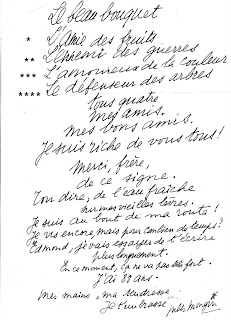 Le beau bouquet
* L'Amie des fruits
** L'Ennemi des guerres
*** L'amoureux de la couleur
**** Le défenseur des arbres
tous quatre
mes amis.
mes bons amis.
Je suis riche de vous tous!
Merci, frère,
de ce signe.
Ton dire, de l'eau fraîche
sur mes vieilles lèvres.
Je suis au bout de ma route!
Je vis encore, mais pour combien de temps?
Edmond, je vais essayer de t'écrire
plus longuement.
En ce moment, ça ne va pas très fort.
J'ai 80 ans.
Mes mains, ma tendresse
Je t'embrasse
Jules Mougin